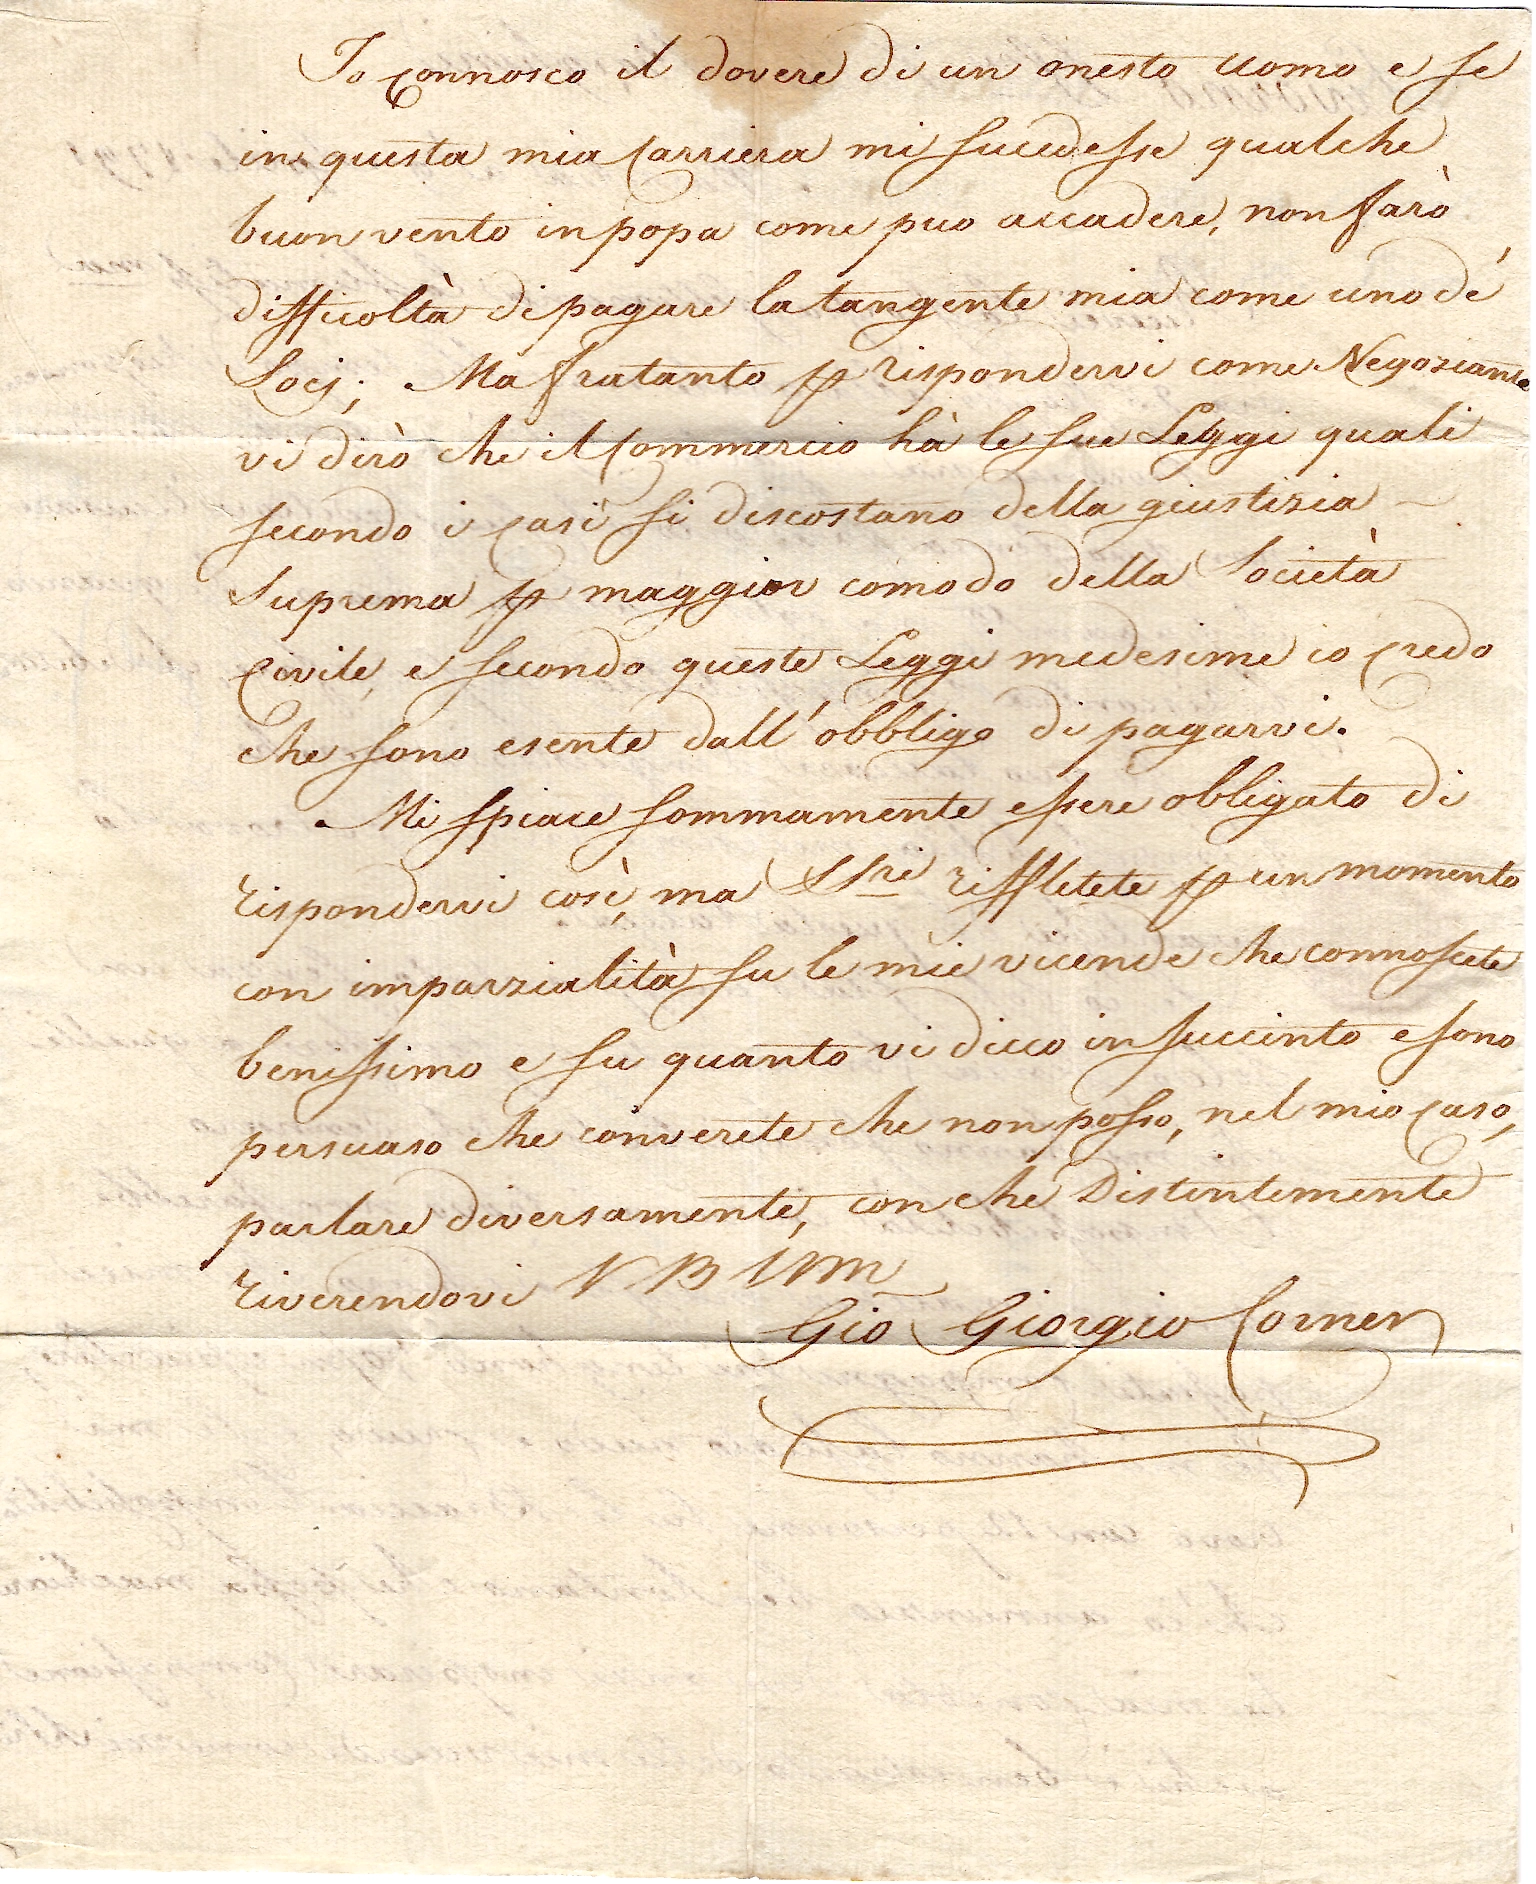 Io connosco il dovere di un onesto uomo e se
in questa mia Carriera mi sucedesse qualche
buon vento in popa come puo accadere, non farò
difficoltà di pagare la tangente mia come uno de'
Socj; Ma fratanto p rispondervi come Negoziante
vi dirò che il Commercio hà le sue Leggi quali
secondo i casi si discostano della giustizia
Suprema p maggior comodo della Società
Civile, e secondo queste Leggi medesime io credo
che sono esente dall'obbligo di pagarvi.
Mi spiace sommamente essere obligato di
rispondervi così, ma SSri rifletete p un momento
con imparzialità su le mie vicende che connoscete
benissimo e su quanto vi dicco in succinto e sono
persuaso che converete che non posso, nel mio Caso,
parlare diversamente, con che Distintemente
riverendovi
Gio Giorgio Corner